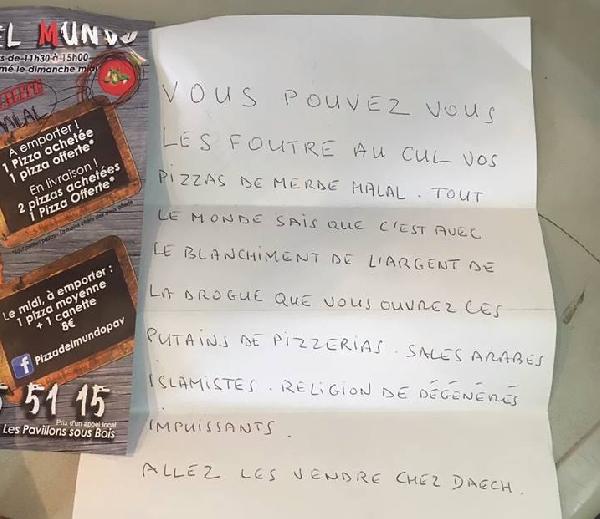 EL MUNDO
s de 11h30 à 15h00
mé le dimanche midi
HALAL
A emporter !
1 Pizza achetée
1 pizza offerte*
En livraison !
2 pizzas achetées
1 Pizza Offerte*
Le midi, à emporter :
1 pizza moyenne
+ 1 canette
8€
f Pizzadelmundopav
5 51 15
Prix d'un appel local
Les Pavillons sous Bois
VOUS POUVEZ VOUS
LES FOUTRE AU CUL VOS
PIZZAS DE MERDE HALAL. TOUT
LE MONDE SAIS QUE C'EST AVEC
LE BLANCHIMENT DE L'ARGENT DE
LA DROGUE QUE VOUS OUVREZ CES
PUTAINS DE PIZZERIAS. SALES ARABES
ISLAMISTES. RELIGION DE DÉGÉNÉRÉS
IMPUISSANTS.
ALLEZ LES VENDRE CHEZ DAECH.